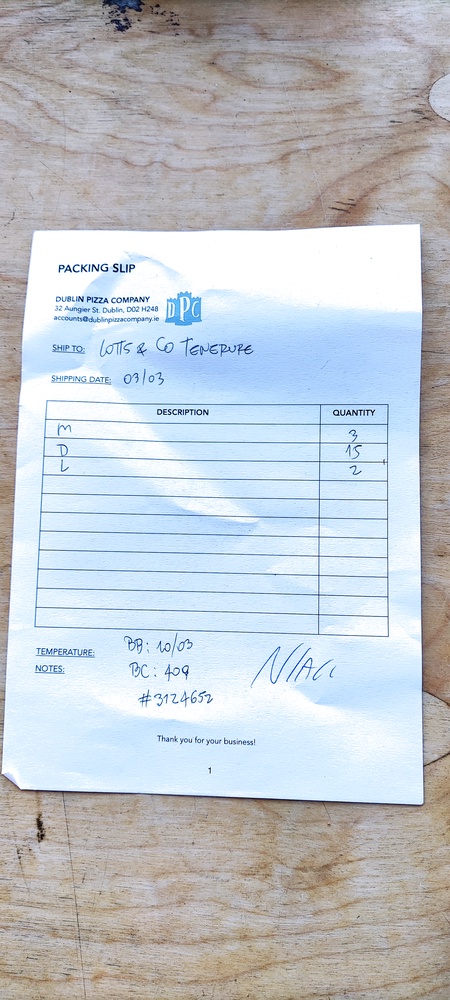 PACKING SLIP
DUBLIN PIZZA COMPANY
32 Aungier St. Dublin, D02 H248
accounts@dublinpizzacompany.ie
DPC
SHIP TO: LOTTS & CO TENERURE
SHIPPING DATE: 03/03
DESCRIPTION QUANTITY
M 3
D 15
L 2
TEMPERATURE: BB: 10/03
NOTES: BC: 409
#3124652
NIALL
Thank you for your business!
1